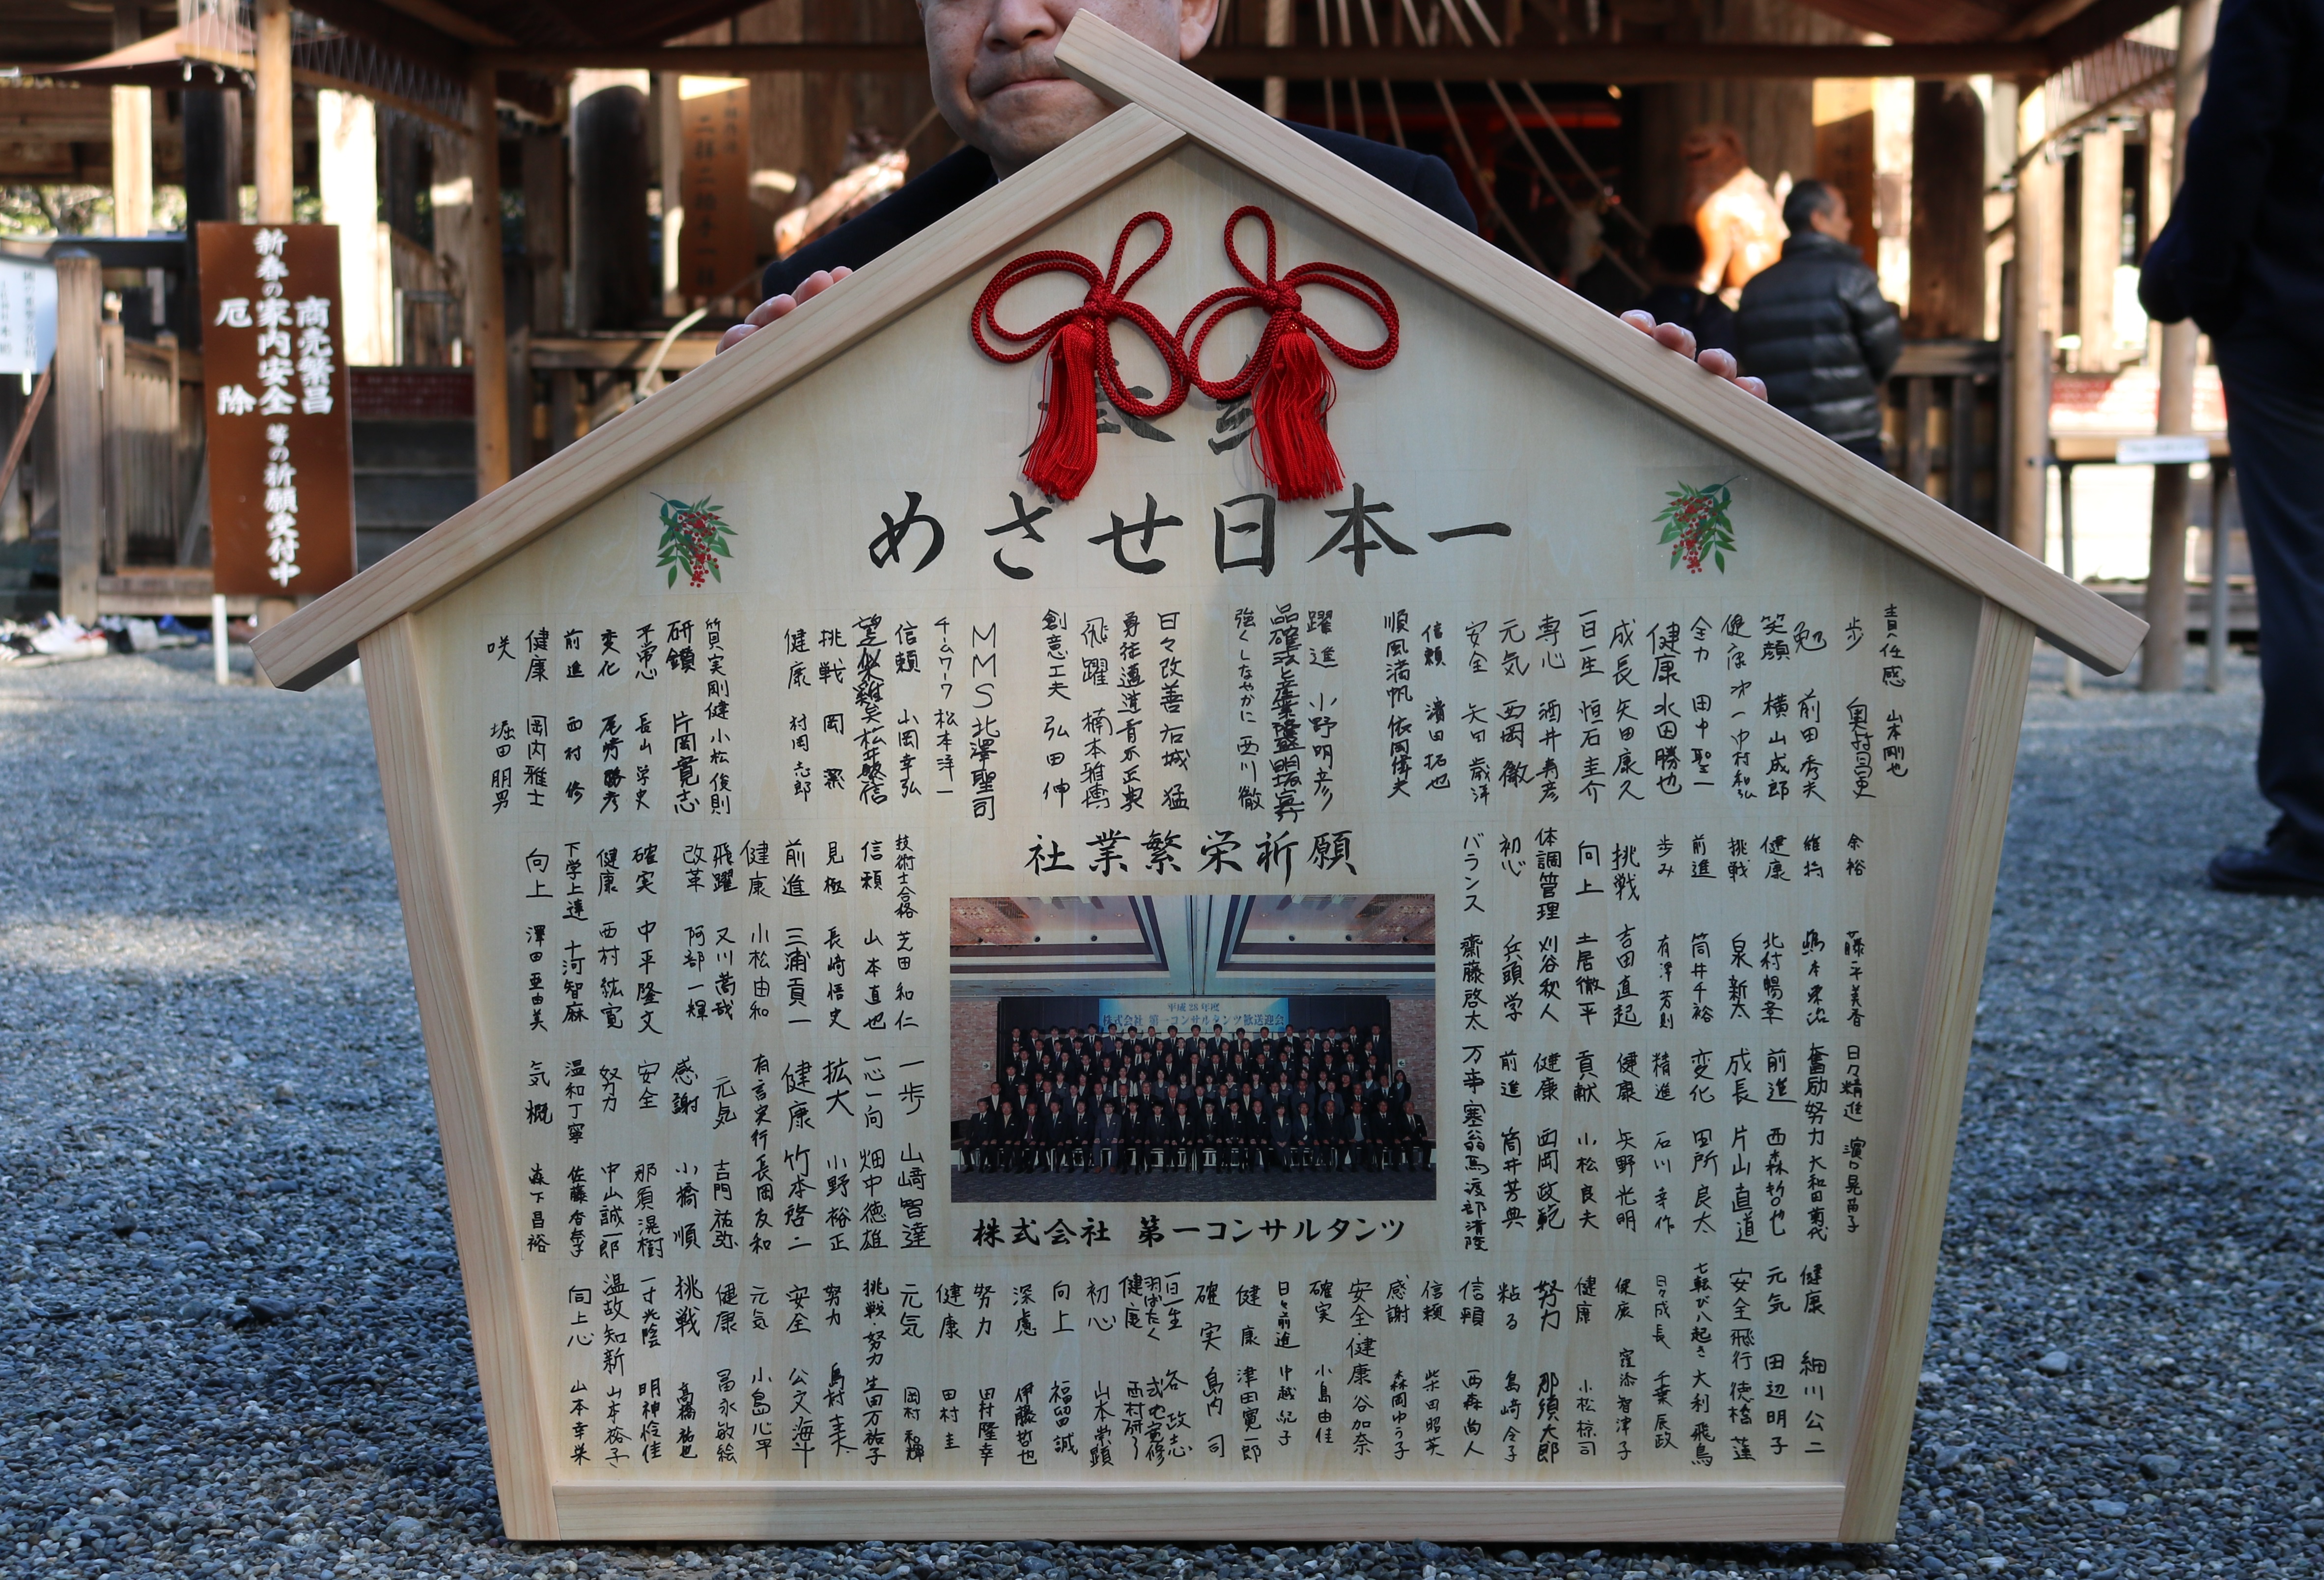 新春の
商売繁昌
家内安全
厄除
等の祈願受付中
二拝二拍手一拝
めざせ日本一
責任感 山本剛也
歩 奥村昌史
勉 前田秀夫
笑顔 横山成郎
全力 田中聖一
健康 永田勝也
成長 矢田康久
一日一生 恒石圭介
専心 酒井寿彦
元気 西岡徹
安全 矢田歳洋
信頼 濱田拓也
順風満帆 依岡偉夫
躍進 小野明彦
強くしなやかに 西川徹
日々改善 右城猛
飛躍 楠本雅博
創意工夫 弘田伸
MMS 北澤聖司
チームワーク 松本洋一
信頼 小岡幸弘
挑戦 岡
健康 村岡志郎
質実剛健 小松俊則
研鑽 片岡寛志
平常心 長山学史
変化 尾﨑勝彦
前進 西村修
健康 岡内雅士
咲 堀田朋男
社業繁栄祈願
余裕 藤平美香
維持 嶋本栄治
健康 北村暢章
挑戦 泉新太
前進 筒井千裕
歩み 有澤芳則
挑戦 吉田直起
向上 土居徹平
体調管理 刈谷秋人
初心 兵頭学
バランス 齋藤啓太
技術士合格 芝田和仁
信頼 山本直也
見極 長崎悟史
前進 三浦貢一
健康 小松由和
飛躍 又川嵩哉
改革 阿部一輝
確実 中平隆文
健康 西村紘寛
下学上達 十河智麻
向上 澤田亜由美
平成28年度
株式会社 第一コンサルタンツ歓送迎会
日々精進 濵口晃苗子
奮励努力 大和田菊代
前進 西森哲也
成長 片山直道
変化 田所良太
精進 石川幸作
健康 矢野光明
貢献 小松良夫
健康 西岡政範
前進 筒井芳典
万事塞翁馬 渡部清隆
一歩 山﨑智達
一心一向 畑中徳雄
拡大 小野裕正
健康 竹本啓二
有言実行 長岡友和
元気 吉門祐弥
感謝 小橋順
安全 那須滉樹
努力 中山誠一郎
温和丁寧 佐藤香奈子
気概 森下昌裕
株式会社 第一コンサルタンツ
健康 細川公二
元気 田辺明子
安全飛行 徳橋蓮
七転び八起き 大利飛鳥
日々成長 千葉辰政
健康 窪添智津子
健康 小松椋司
努力 那須大郎
粘る 島崎令子
信頼 西森尚人
信頼 柴田昭英
感謝 森岡ゆう子
安全健康 谷加奈
確実 小島由佳
日々前進 中越紀子
健康 津田寛一郎
確実 島内司
一日一生 谷政志
羽ばたく
健康
初心 山本崇顕
向上 福留誠
深慮 伊藤哲也
努力 田村隆幸
健康 田村圭
元気 岡村和輝
挑戦・努力 生田万祐子
努力 島村
安全 公文海斗
元気 小島心平
健康 冨永敏絵
挑戦 高橋祐也
一寸光陰 明神怜佳
温故知新 山本裕子
向上心 山本幸栄